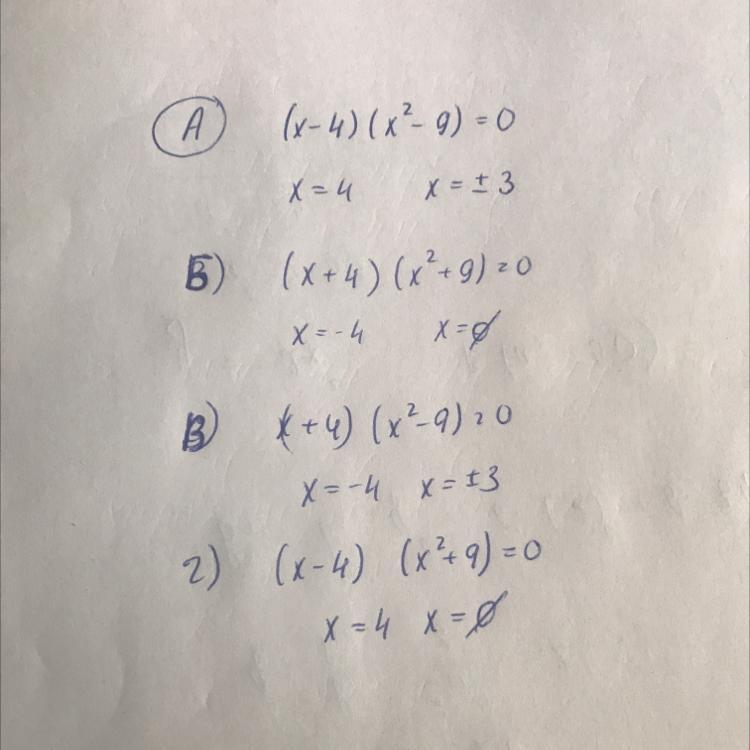 А (x-4)(x²-9)=0
x=4 x=±3
Б) (x+4)(x²+9)=0
x=-4 x=∅
В) (x+4)(x²-9)=0
x=-4 x=±3
г) (x-4) (x²+9)=0
x=4 x=∅